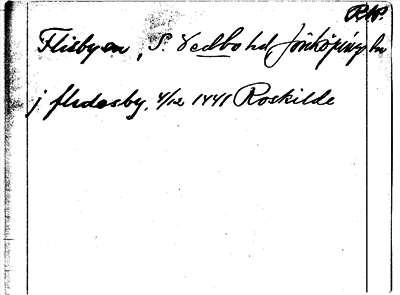 RAP.
Flisby sn, S. Vedbo hd, Jönköpings län
j flidasby, 4/12 1441 Roskilde